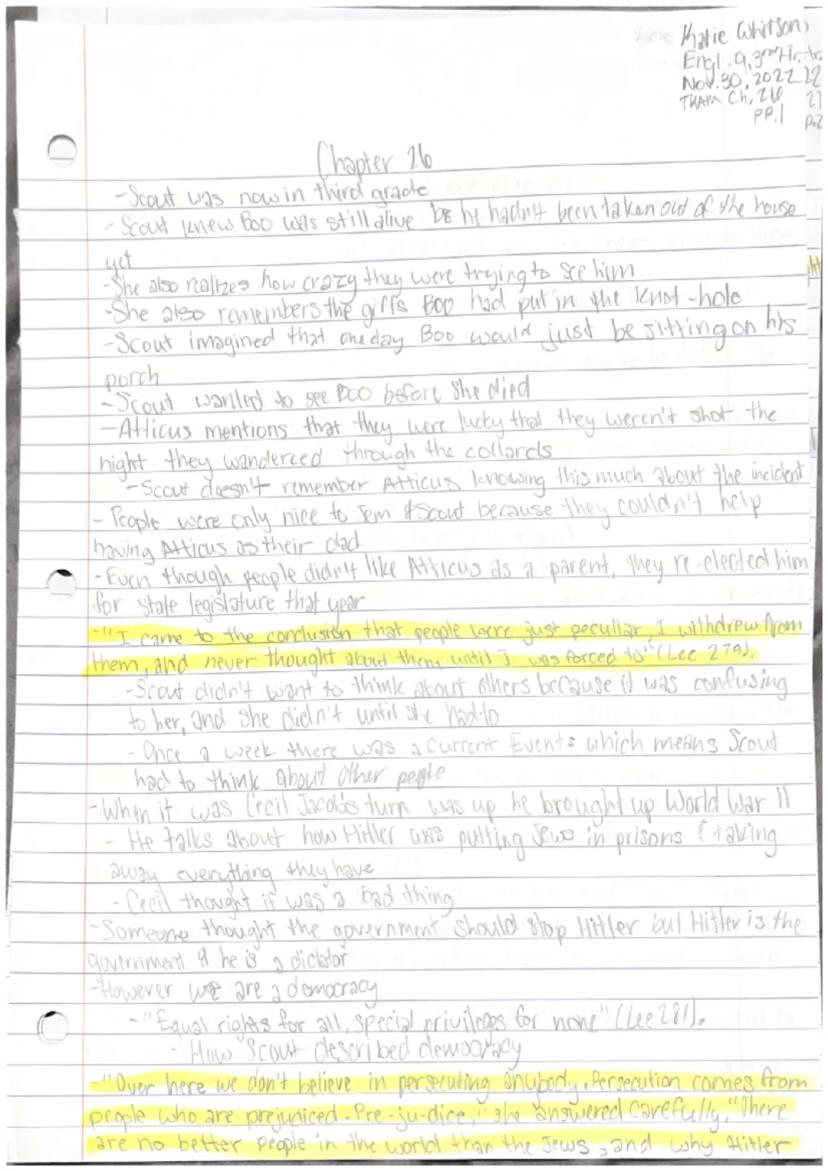 Katie Whitson
Engl. 9, 3rd Hr.
Nov. 30, 2022
TKAM Ch, 26
PP.1
Chapter 26
-Scout was now in third grade
-Scout knew Boo was still alive bc he hadn't been taken out of the house
yet
-She also realizes how crazy they were trying to see him
-She also remembers the gifts Boo had put in the knot-hole
-Scout imagined that one day Boo would just be sitting on his
porch
-Scout wanted to see Boo before she died
-Atticus mentions that they were lucky that they weren't shot the
night they wandered through the collards
-Scout doesn't remember Atticus knowing this much about the incident
- People were only nice to Jem & Scout because they couldn't help
having Atticus as their dad
-Even though people didn't like Atticus as a parent, they re-elected him
for state legislature that year
-"I came to the conclusion that people were just peculiar, I withdrew from
them, and never thought about them until I was forced to" (Lee 279).
-Scout didn't want to think about others because it was confusing
to her, and she didn't until she had to
- Once a week there was a Current Events which means Scout
had to think about other people
-When it was Cecil Jacobs turn was up he brought up World War II
- He talks about how Hitler was putting Jews in prisons & taking
away everything they have
- Cecil thought it was a bad thing
-Someone thought the government should stop Hitler but Hitler is the
government & he is a dictator
-However we are a democracy
-"Equal rights for all, special privileges for none" (Lee 281).
- How Scout described democracy
-"Over here we don't believe in persecuting anybody. Persecution comes from
people who are prejudiced. Pre-ju-dice," she answered carefully. "There
are no better people in the world than the Jews, and why Hitler